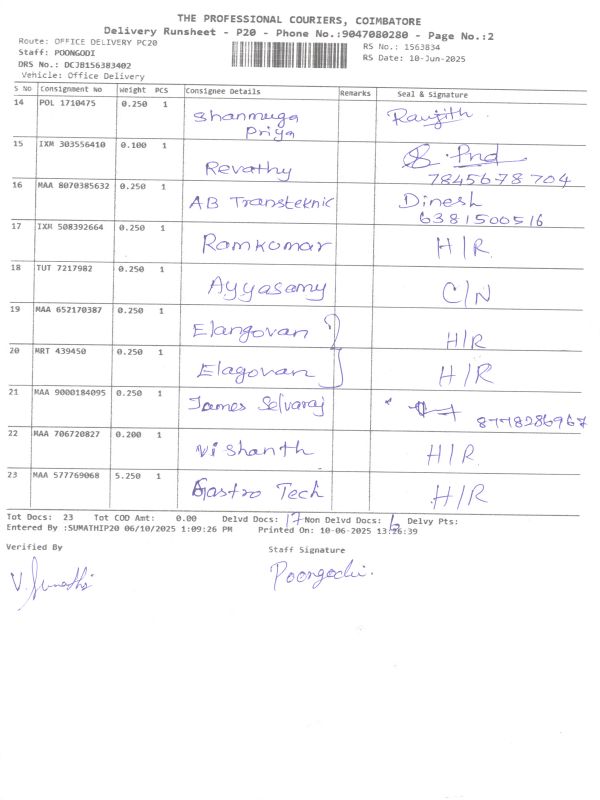 THE PROFESSIONAL COURIERS, COIMBATORE
Delivery Runsheet - P20 - Phone No.:9047080280 - Page No.:2
Route: OFFICE DELIVERY PC20
RS No.: 1563834
Staff: POONGODI
RS Date: 10-Jun-2025
DRS No.: DCJB156383402
Vehicle: Office Delivery
S NO Consignment No Weight PCS Consignee Details Remarks Seal & Signature
14 POL 1710475 0.250 1 Shanmuga Priya Ranjith
15 IXM 303556410 0.100 1 Revathy 7845678704
16 MAA 8070385632 0.250 1 AB Transteknic Dinesh 6381500516
17 IXM 508392664 0.250 1 Ramkumar H/R
18 TUT 7217982 0.250 1 Ayyasamy C/N
19 MAA 652170387 0.250 1 Elangovan H/R
20 MRT 439450 0.250 1 Elagovan H/R
21 MAA 9000184095 0.250 1 James Selvaraj 8778286967
22 MAA 706720827 0.200 1 Vishanth H/R
23 MAA 577769068 5.250 1 Gastro Tech H/R
Tot Docs: 23 Tot COD Amt: 0.00 Delvd Docs: 17 Non Delvd Docs: 6 Delvy Pts:
Entered By :SUMATHIP20 06/10/2025 1:09:26 PM Printed On: 10-06-2025 13:26:39
Verified By
Staff Signature
V. Sumathi
Poongodi.